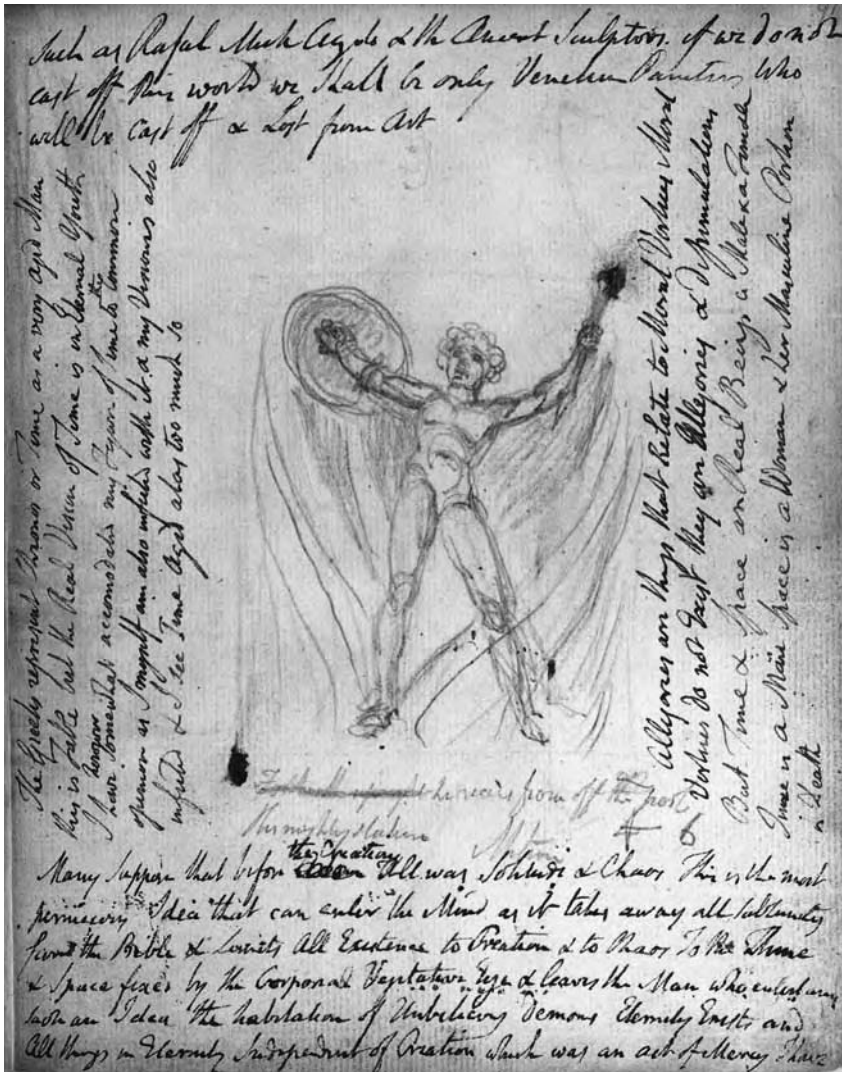 Such as Rafael Mich Angelo & the Ancient Sculptors. if we do not
cast off this world we shall be only Venetian Painters who
will be cast off & Lost from Art
The Greeks represent Chronos or Time as a very Aged Man
this is Fable but the Real Vision of Time is in Eternal Youth
I have
however
somewhat accomodated my Figure of Time to
the
common
opinion as I myself am also infected with it & my Visions also
infected & I see Time Aged alas too much so
Allegories are things that Relate to Moral Virtues Moral
Virtues do not Exist they are Allegories & dissimulations
But Time & Space are Real Beings a Male & a Female
Time is a Man Space is a Woman & her Masculine Portion
is Death
he rears from off the pool
His mighty stature
Milton
Many suppose that before
the Creation
All was Solitude & Chaos This is the most
pernicious Idea that can enter the Mind as it takes away all sublimity
from the Bible & Limits All Existence to Creation & to Chaos To the Time
& Space fixed by the Corporeal Vegetative Eye & leaves the Man who entertains
such an Idea the habitation of Unbelieving Demons Eternity Exists and
All things in Eternity Independent of Creation which was an act of Mercy I have